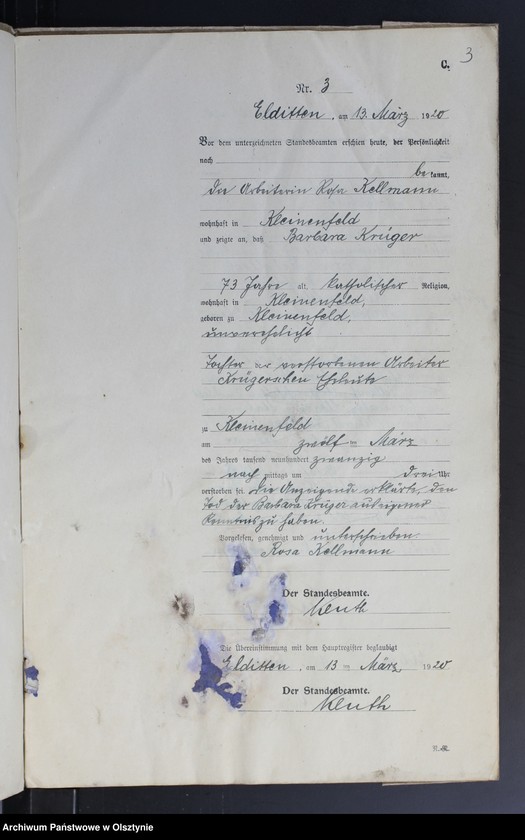 3
C.
Nr. 3
Elditten, am 13. März 1920
Vor dem unterzeichneten Standesbeamten erschien heute, der Persönlichkeit
nach
be kannt,
die Arbeiterin Rosa Kellmann
wohnhaft in Kleinenfeld
und zeigte an, daß Barbara Krüger
73 Jahre alt, katholischer Religion,
wohnhaft in Kleinenfeld,
geboren zu Kleinenfeld,
unverehelicht
Tochter der verstorbenen Arbeiter
Krügerschen Eheleute
zu Kleinenfeld
am zwölften März
des Jahres tausend neunhundert zwanzig
nach mittags um drei Uhr
verstorben sei. Die Anzeigende erklärte, den
Tod der Barbara Krüger aus eigener
Kenntnis zu haben.
Vorgelesen, genehmigt und unterschrieben
Rosa Kellmann
Der Standesbeamte.
Die Übereinstimmung mit dem Hauptregister beglaubigt
Elditten, am 13 ten März 1920
Der Standesbeamte.
Archiwum Państwowe w Olsztynie